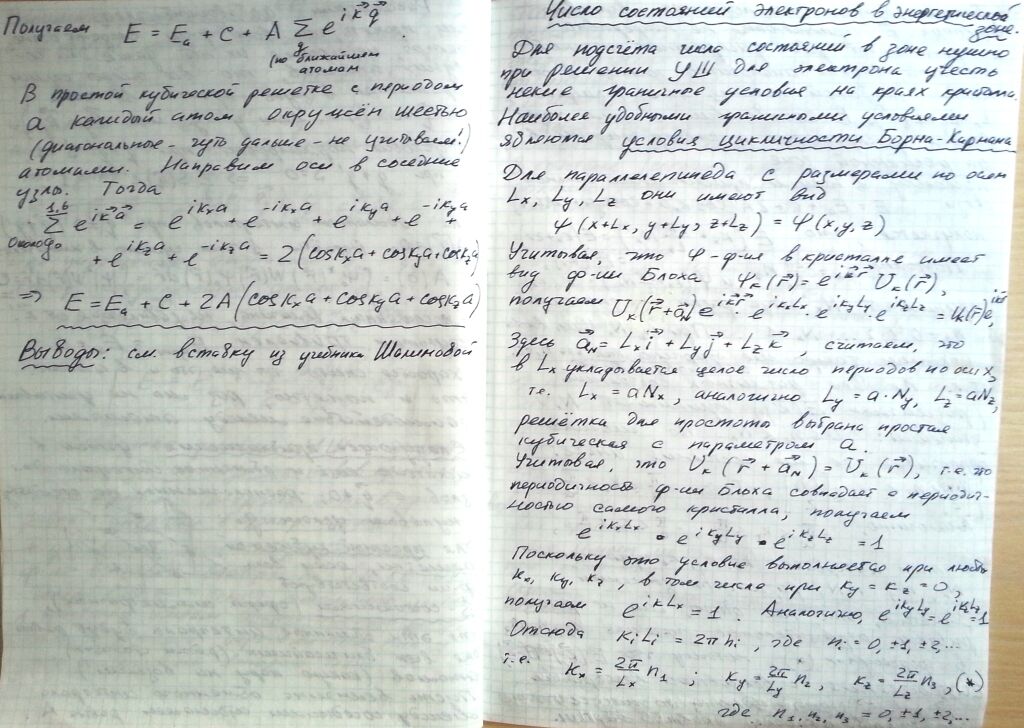 Получаем E = Eₐ + C + A Σ e^{i k⃗ g⃗}.
g
(по ближайшим
атомам
В простой кубической решетке с периодом
a каждый атом окружён шестью
(диагональные - чуть дальше - не учитываем!)
атомами. Направим оси в соседние
узлы. Тогда
1,6
Σ e^{i k⃗ a⃗} = e^{i kₓ a} + e^{-i kₓ a} + e^{i k_y a} + e^{-i k_y a} +
+ e^{i k_z a} + e^{-i k_z a} = 2 (cos kₓa + cos k_y a + cos k_z a)
⇒ E = Eₐ + C + 2A (cos kₓa + cos k_y a + cos k_z a)
Выводы: см. вставку из учебника Шалимовой
Число состояний электронов в энергетической
зоне.
Для подсчёта числа состояний в зоне нужно
при решении УШ для электрона учесть
некие граничные условия на краях кристалла.
Наиболее удобными граничными условиями
являются условия цикличности Борна-Кармана
Для параллелепипеда с размерами по осям
Lₓ, L_y, L_z они имеют вид
Ψ (x+Lₓ, y+L_y, z+L_z) = Ψ (x,y,z)
Учитывая, что Ψ-ф-ия в кристалле имеет
вид ф-ии Блоха Ψₖ(r⃗) = e^{i k⃗ r⃗} Uₖ(r⃗),
получаем Uₖ(r⃗ + a⃗_N) e^{i k⃗ r⃗} · e^{i kₓ Lₓ} · e^{i k_y L_y} · e^{i k_z L_z} = Uₖ(r⃗) e^{i k⃗ r⃗},
Здесь a⃗_N = Lₓ i⃗ + L_y j⃗ + L_z k⃗, считаем, что
в Lₓ укладывается целое число периодов по оси x,
т.е. Lₓ = aNₓ, аналогично L_y = a·N_y, L_z = aN_z,
решётка для простоты выбрана простая
кубическая с параметром a.
Учитывая, что Uₖ (r⃗ + a⃗_N) = Uₖ (r⃗), т.е. что
периодичность ф-ии Блоха совпадает с периодич-
ностью самого кристалла, получаем
e^{i kₓ Lₓ} • e^{i k_y L_y} • e^{i k_z L_z} = 1
Поскольку это условие выполняется при любых
kₓ, k_y, k_z, в том числе при k_y = k_z = 0,
получаем e^{i k Lₓ} = 1. Аналогично, e^{i k_y L_y} = e^{i k_z L_z} = 1
Отсюда kᵢLᵢ = 2π nᵢ, где nᵢ = 0, ±1, ±2,...
т.е. kₓ = 2π/Lₓ n₁ ; k_y = 2π/L_y n₂, k_z = 2π/L_z n₃, (*)
где n₁, n₂, n₃ = 0, ±1, ±2,...